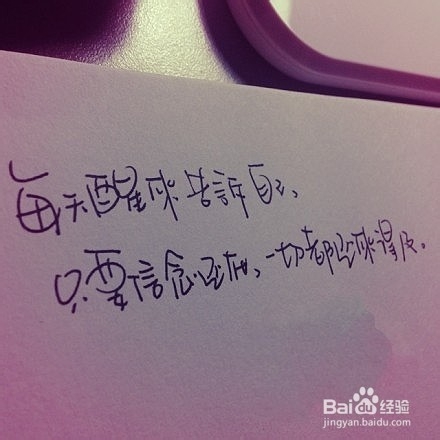 每天醒来告诉自己、
只要信念还在、一切都还来得及。
Baidu经验
jingyan.baidu.com